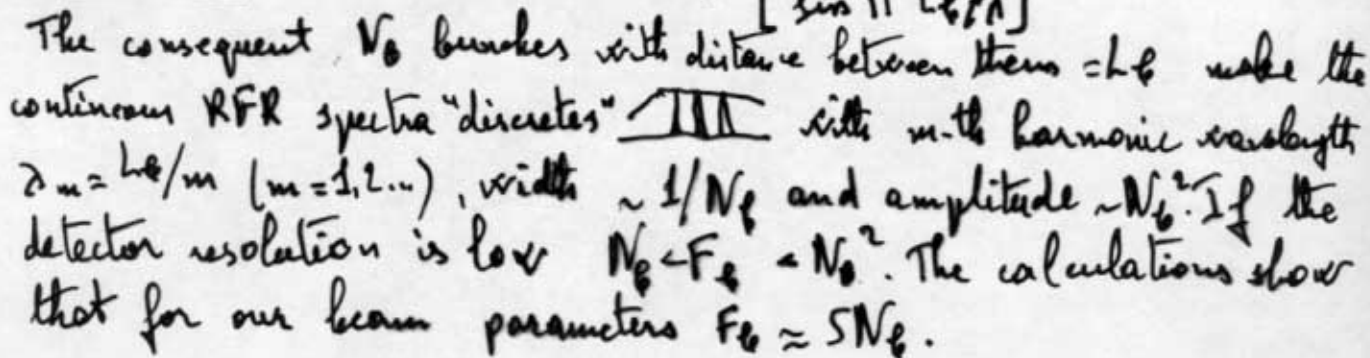 [sin π L_b/λ]
The consequent N_b bunches with distance between them = L_b make the
continuous RFR spectra "discretes" with m-th harmonic wavelength
λ_m = L_b/m (m=1,2...), width ~ 1/N_b and amplitude ~N_b². If the
detector resolution is low N_b < F_b < N_b². The calculations show
that for our beam parameters F_b ≈ 5N_b.